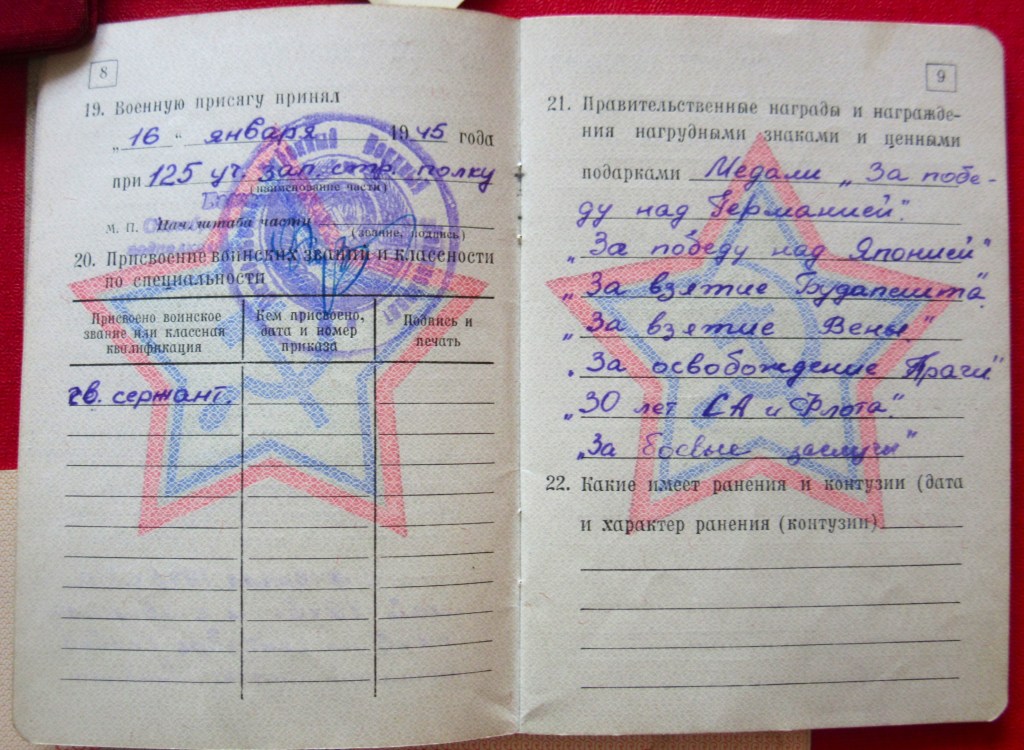 8
19. Военную присягу принял
„16 “ января 1945 года
при 125 уч. зап. стр. полку
(наименование части)
М. П. Нач. штаба части
(звание, подпись)
20. Присвоение воинских званий и классности
по специальности
Присвоено воинское
звание или классная
квалификация
Кем присвоено,
дата и номер
приказа
Подпись и
печать
гв. сержант.
9
21. Правительственные награды и награжде-
ния нагрудными знаками и ценными
подарками Медали „За побе-
ду над Германией".
„За победу над Японией"
„За взятие Будапешта"
„За взятие Вены"
„За освобождение Праги"
„30 лет СА и Флота".
„За боевые заслуги"
22. Какие имеет ранения и контузии (дата
и характер ранения (контузии)